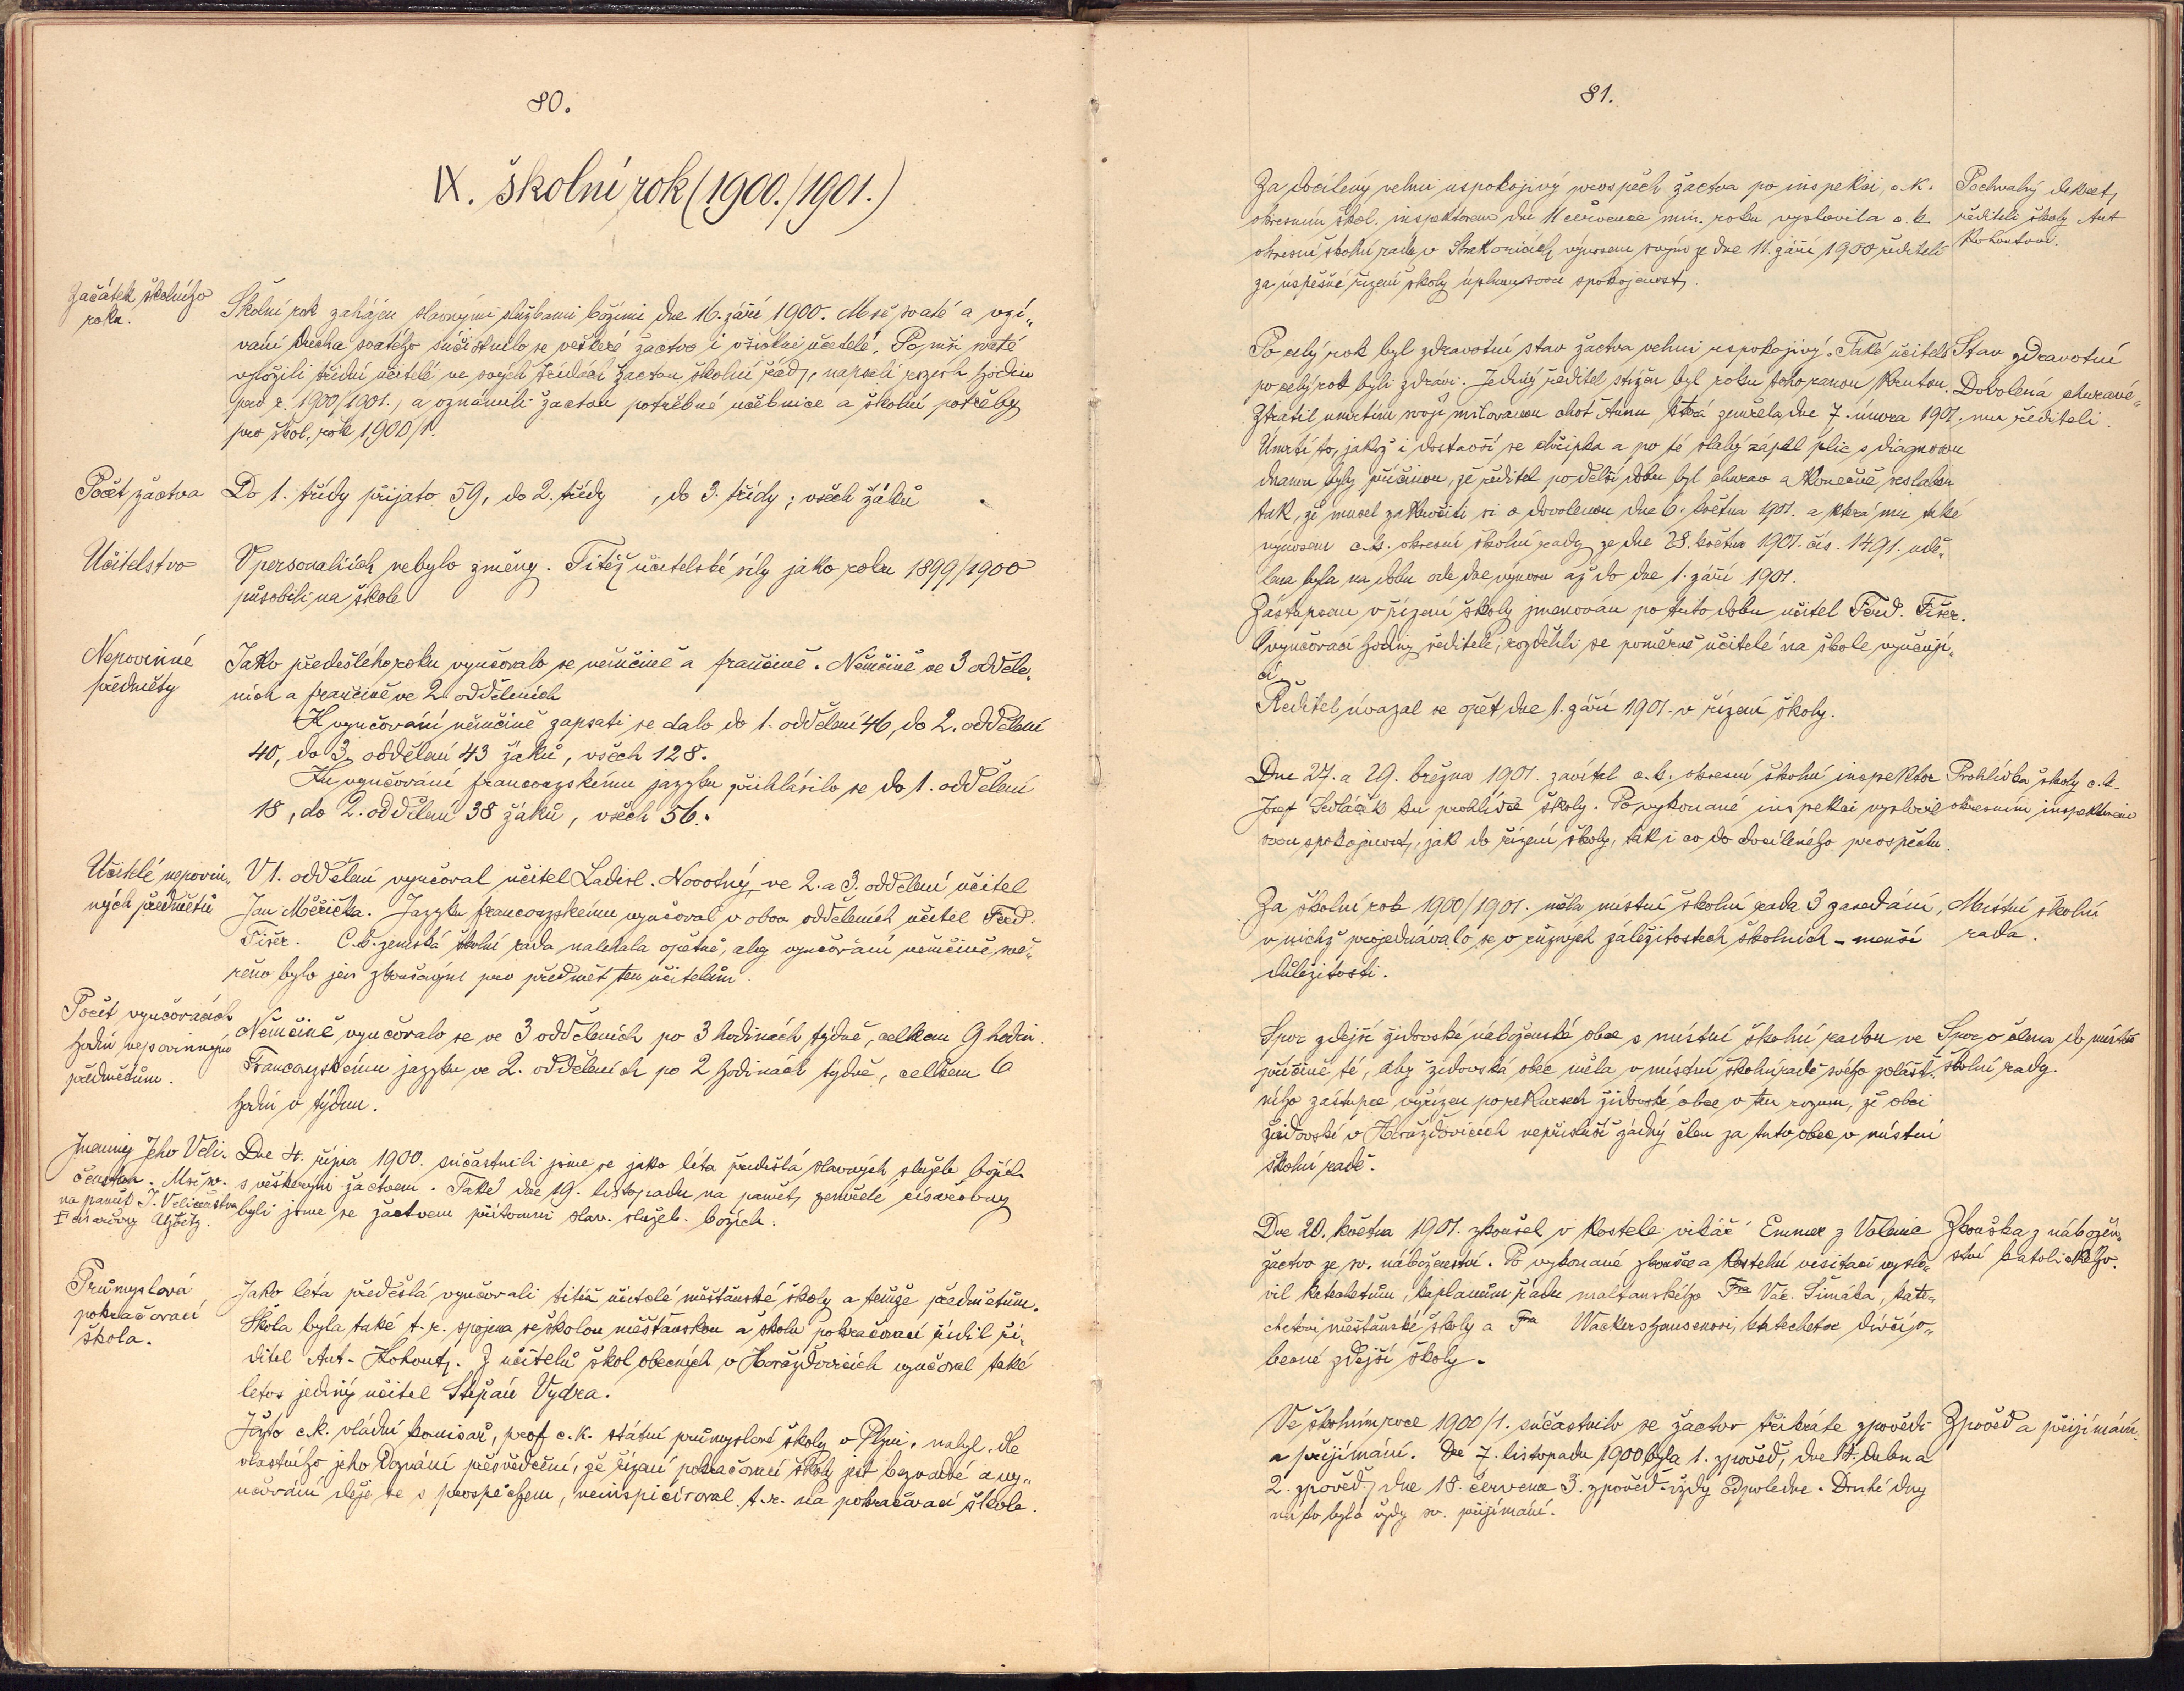 80.
IX. školní rok (1900./1901.)
Začátek školního
roku.
Školní rok zahájen slavnými službami božími dne 16. září 1900. Mše svaté a vzý„
vání Ducha svatého súčastnilo se veškeré žactvo i všichni učitelé. Po mši svaté
vyložili třídní učitelé ve svých třídách žactvu školní řád, napsali rozvrh hodin
pro r. 1900/1901., a oznámili žactvu potřebné učebnice a školní potřeby
pro škol. rok 1900/1.
Počet žactva
Do 1. třídy přijato 59, do 2. třídy , do 3. třídy ; všech žáků .
Učitelstvo
V personaliích nebylo změny. Titéž učitelské síly jako roku 1899/1900
působili na škole
Nepovinné
předměty
Jako předešlého roku vyučovalo se němčině a frančině. Němčině ve 3 odděle„
ních a frančině ve 2 odděleních
K vyučování němčině zapsati se dalo do 1. oddělení 46, do 2. oddělení
40, do 3. oddělení 43 žáků, všech 128.
Ku vyučování francouzskému jazyku přihlásilo se do 1. oddělení
18, do 2. oddělení 38 žáků, všech 56.
Učitelé nepovin„
ných předmětů
V 1. oddělení vyučoval učitel Ladisl. Novotný, ve 2. a 3. oddělení učitel
Jan Měřička. Jazyku francouzskému vyučoval v obou odděleních učitel Ferd.
Fišer. C.k. zemská školní rada naléhala opětně, aby vyučování němčině svě„
řeno bylo jen zkoušeným pro předmět ten učitelům.
Počet vyučovacích
hodin nepovinným
předmětům.
Němčině vyučovalo se ve 3 odděleních po 3 hodinách týdně, celkem 9 hodin.
Francouzskému jazyku ve 2. odděleních po 2 hodinách týdně, celkem 6
hodin v týdnu.
Jmeniny Jeho Veli-
čenstva. Mše sv.
na paměť J. Veličenstva
císařovny Alžběty.
Dne 4. října 1900. súčastnili jsme se jako léta předešlá slavných služeb božích
s veškerým žactvem. Také dne 19. listopadu na paměť zemřelé císařovny
byli jsme se žactvem přítomni slav. služeb. božích.
Průmyslová
pokračovací
škola.
Jako léta předešlá vyučovali titíž učitelé měšťanské školy a týmže předmětům.
Škola byla také t. r. spojena se školou měšťanskou a školu pokračovací řídil ři„
ditel Ant. Kohout. Z učitelů škol obecných v Horažďovicích vyučoval také
letos jediný učitel Štěpán Vydra.
Ježto c.k. vládní komisař, prof. c.k. státní průmyslové školy v Plzni, nabyl, dle
vlastního jeho doznání přesvědčení, že řízení pokračovací školy jest bezvadné a vy„
učování děje se s prospěchem, neinspicíroval t. r. na pokračovací škole.
81.
Za docílený velmi uspokojivý prospěch žactva po inspekci, c.k.
okresním škol. inspektorem dne 11 července min. roku vyslovila c. k.
okresní školní rada v Strakonicích výnosem svým ze dne 11. září 1900 řediteli
za úspěšné řízení školy úplnou svou spokojenost.
Pochvalný dekret
řediteli školy Ant
Kohoutovi.
Po celý rok byl zdravotní stav žactva velmi uspokojivý. Také učitelé
po celý rok byli zdrávi. Jediný ředitel stižen byl roku toho ranou krutou.
Ztratil úmrtím svoji milovanou choť Annu, která zemřela dne 7. února 1901.
Úmrtí to, jakož i dostavší se chřipka a po té slabý zápal plic
byly příčinou, že ředitel po delší dobu byl churav a konečně seslaben
tak, že musel zakročiti si o dovolenou dne 6. května 1901. a která mu také
výnosem c.k. okresní školní rady ze dne 28. května 1901. čís. 1491. udě„
lena byla na dobu ode dne výnosu až do dne 1. září 1901.
Zástupcem v řízení školy jmenován po tuto dobu učitel Ferd. Fišer.
O vyučovací hodiny ředitele, rozdělili se poměrně učitelé na škole vyučují„
cí.
Ředitel uvázal se opět dne 1. září 1901. v řízení školy.
Stav zdravotní
Dovolená churavé„
mu řediteli.
Dne 27. a 29. března 1901. zavítal c.k. okresní školní inspektor
Josef Sedláček ku prohlídce školy. Po vykonané inspekci vyslovil
svou spokojenost, jak do řízení školy, tak i co do docíleného prospěchu.
Prohlídka školy c.k.
okresním inspektorem
Za školní rok 1900/1901. měla místní školní rada 3 zasedání,
v nichž projednávalo se o různých záležitostech školních – menší
důležitosti.
Místní školní
rada.
Spor zdejší židovské náboženské obce s místní školní radou ve
příčině té, aby židovská obec měla v místní školní radě svého zvlášt-
ního zástupce vyřízen po rekursech židovské obce v ten rozum, že obci
židovské v Horažďovicích nepřísluší žádný člen za tuto obec v místní
školní radě.
Spor o člena do místní
školní rady.
Dne 20. května 1901. zkoušel v kostele vikář Emmer z Volenic
žactvo ze sv. náboženství. Po vykonané zkoušce a kostelní visitaci vyslo„
vil katechetům, kaplanům řádu maltanského Fra Vác. Šimáka, kate„
chetovi měšťanské školy a Fra Wackershausenovi, katechetov dívčí o„
becné zdejší školy.
Zkouška z nábožen„
ství katolického.
Ve školním roce 1900/1. súčastnilo se žactvo třikráte zpovědi
a přijímání. Dne 7. listopadu 1900 byla 1. zpověď, dne dubna
2. zpověď, dne 18. července 3. zpověď vždy odpoledne. Druhé dny
na to bylo vždy sv. přijímání.
Zpověď a přijímání.